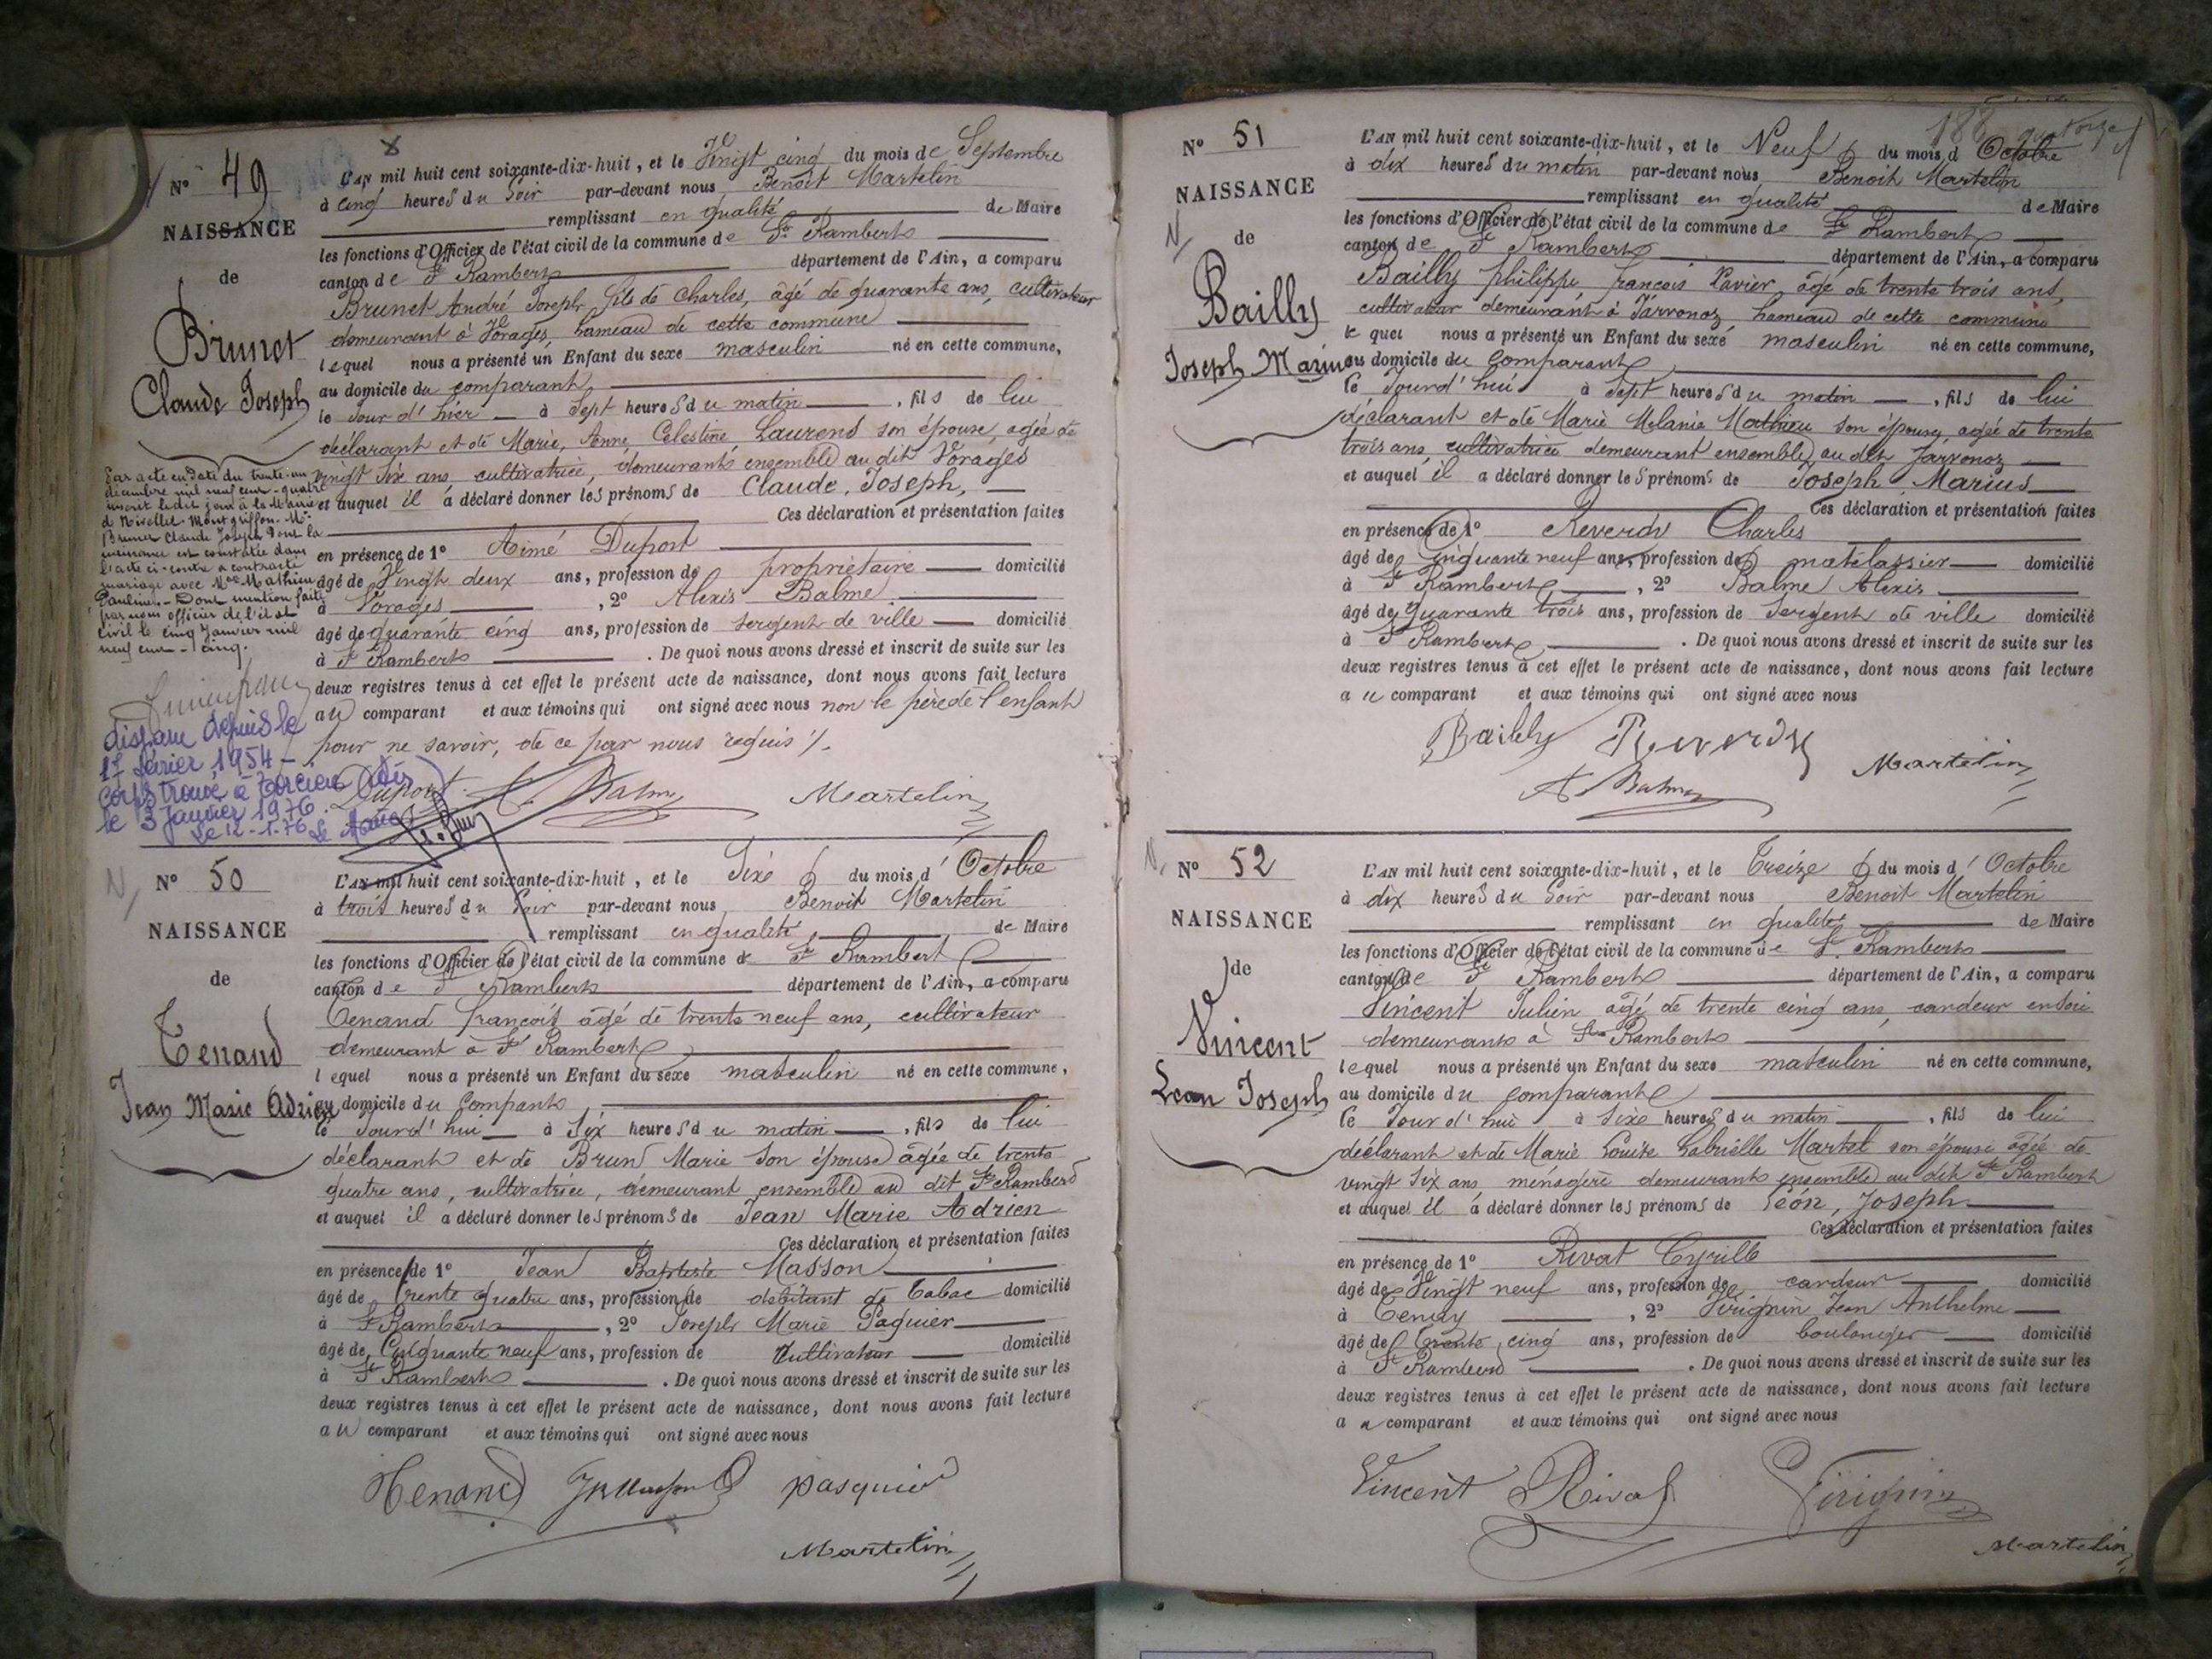 N° 49
NAISSANCE
de
Brunet
Claude Joseph
L'AN mil huit cent soixante-dix-huit, et le Vingt cinq du mois de Septembre
à cinq heures du Soir par-devant nous Benoit Martelin
remplissant en qualité de Maire
les fonctions d'Officier de l'état civil de la commune de St Rambert
canton de St Rambert département de l'Ain, a comparu
Brunet André Joseph fils de Charles, âgé de quarante ans, cultivateur
demeurant à Vorages, hameau de cette commune
lequel nous a présenté un Enfant du sexe masculin né en cette commune,
au domicile du comparant
le Jour d'hier à Sept heures du matin, fils de lui
déclarant et de Marie, Anne, Celestine Laurend son épouse, agée de
vingt six ans, cultivatrice, demeurants ensemble au dit Vorages
et auquel il a déclaré donner les prénoms de Claude, Joseph,
Ces déclaration et présentation faites
en présence de 1° Aimé Dupont
âgé de Vingt deux ans, profession de propriétaire domicilié
à Vorages, 2° Alexis Balme
âgé de quarante cinq ans, profession de sergent de ville domicilié
à St Rambert. De quoi nous avons dressé et inscrit de suite sur les
deux registres tenus à cet effet le présent acte de naissance, dont nous avons fait lecture
au comparant et aux témoins qui ont signé avec nous non le père de l'enfant
pour ne savoir, de ce par nous requis %.
Dupont A. Balme Martelin
Par acte en date du trente-un
décembre mil neuf cent-quatre
inscrit ledit jour à la Mairie
de Nivollet-Montgriffon. Mr.
Brunet Claude Joseph dont la
naissance est constatée dans
l'acte ci-contre a contracté
mariage avec Melle Mathieu
Pauline. - Dont mention faite
par nous officier de l'état
civil le cinq Janvier mil
neuf cent-cinq.
disparu depuis le
17 février 1954 -
Corps trouvé à Torcieu (Ain)
le 3 Janvier 1976.
Le 12-1-76 Le Maire
N° 50
NAISSANCE
de
Tenand
Jean Marie Adrien
L'AN mil huit cent soixante-dix-huit, et le Sixe du mois d'Octobre
à trois heures du Soir par-devant nous Benoit Martelin
remplissant en qualité de Maire
les fonctions d'Officier de l'état civil de la commune de St Rambert
canton de St Rambert département de l'Ain, a comparu
Tenand François âgé de trente neuf ans, cultivateur
demeurant à St Rambert
lequel nous a présenté un Enfant du sexe masculin né en cette commune,
au domicile du Compants
le Jourd'hui à Six heures du matin, fils de lui
déclarant et de Brun Marie son épouse agée de trente
quatre ans, cultivatrice, demeurant ensemble au dit St Rambert
et auquel il a déclaré donner les prénoms de Jean Marie Adrien
Ces déclaration et présentation faites
en présence de 1° Jean Baptiste Masson
âgé de trente quatre ans, profession de debitant de tabac domicilié
à St Rambert, 2° Joseph Marie Paquier
âgé de Cinquante neuf ans, profession de Cultivateur domicilié
à St Rambert. De quoi nous avons dressé et inscrit de suite sur les
deux registres tenus à cet effet le présent acte de naissance, dont nous avons fait lecture
au comparant et aux témoins qui ont signé avec nous
Tenand JB Masson pasquier
Martelin
188 quatorze
N° 51
NAISSANCE
de
Bailly
Joseph Marius
L'AN mil huit cent soixante-dix-huit, et le Neuf du mois d Octobre
à dix heures du matin par-devant nous Benoit Martelin
remplissant en qualité de Maire
les fonctions d'Officier de l'état civil de la commune de St Rambert
canton de St Rambert département de l'Ain, a comparu
Bailly philippe francois Xavier âgé de trente trois ans,
cultivateur demeurant à Jarvonoz hameau de cette commune
lequel nous a présenté un Enfant du sexe masculin né en cette commune,
au domicile du Comparant
le Jourd'hui à Sept heures du matin, fils de lui
déclarant et de Marie Melanie Mathieu son épouse, agée de trente
trois ans, cultivatrice demeurant ensemble au dit Jarvonoz
et auquel il a déclaré donner les prénoms de Joseph Marius
Ces déclaration et présentation faites
en présence de 1° Reverdy Charles
âgé de Cinquante neuf ans, profession de matelassier domicilié
à St Rambert, 2° Balme Alexis
âgé de quarante trois ans, profession de Sergent de ville domicilié
à St Rambert. De quoi nous avons dressé et inscrit de suite sur les
deux registres tenus à cet effet le présent acte de naissance, dont nous avons fait lecture
au comparant et aux témoins qui ont signé avec nous
Bailly Reverdy
A Balme Martelin
N° 52
NAISSANCE
de
Vincent
Léon Joseph
L'AN mil huit cent soixante-dix-huit, et le Treize du mois d'Octobre
à dix heures du Soir par-devant nous Benoit Martelin
remplissant en qualité de Maire
les fonctions d'Officier de l'état civil de la commune de St Rambert
canton de St Rambert département de l'Ain, a comparu
Vincent Julien âgé de trente cinq ans, cardeur en soie
demeurants à St Rambert
lequel nous a présenté un Enfant du sexe masculin né en cette commune,
au domicile du comparant
le Jour d'hui à sixe heures du matin, fils de lui
déclarant et de Marie Louise Gabrielle Martel son épouse âgée de
vingt six ans ménagère demeurants ensemble au dit St Rambert
et auquel il a déclaré donner les prénoms de Léon, Joseph
Ces déclaration et présentation faites
en présence de 1° Rivat Cyrille
âgé de Vingt neuf ans, profession de cardeur domicilié
à Tenay, 2° Virignin Jean Anthelme
âgé de Trente cinq ans, profession de boulanger domicilié
à St Rambert. De quoi nous avons dressé et inscrit de suite sur les
deux registres tenus à cet effet le présent acte de naissance, dont nous avons fait lecture
au comparant et aux témoins qui ont signé avec nous
Vincent Rivat Virignin
Martelin